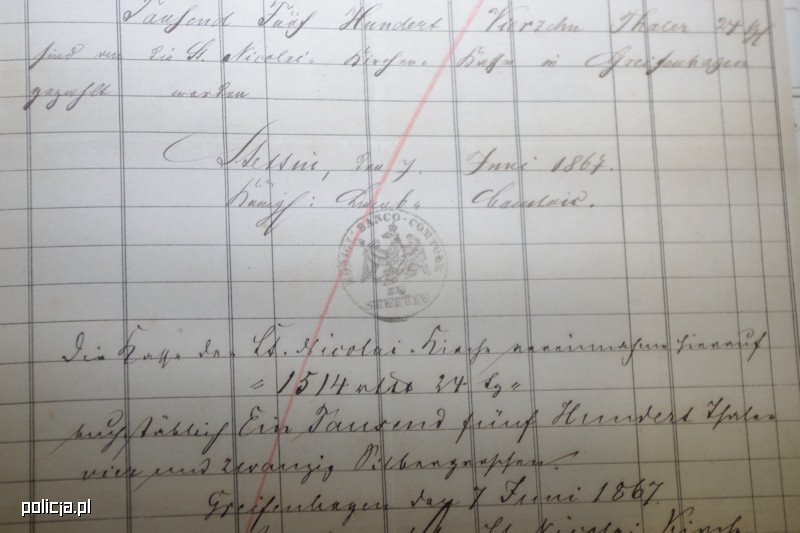 Tausend Fünf Hundert Vierzehn Thaler 24 Sg
sind von die St. Nicolai- Kirchen- Kasse in Greifenhagen
gezahlt worden
Stettin, den 7. Juni 1867.
Königl:
KOENIGL: BANCO-COMTOIR
ZU
STETTIN
Die Kasse der St. Nicolai-Kirche vereinnahme hierauf
" 1514 rtlr 24 Sg "
buchstäblich Ein Tausend fünf Hundert Thaler
vier und zwanzig Silbergroschen.
Greifenhagen den 7 Juni 1867.
St. Nicolai Kirch
policja.pl